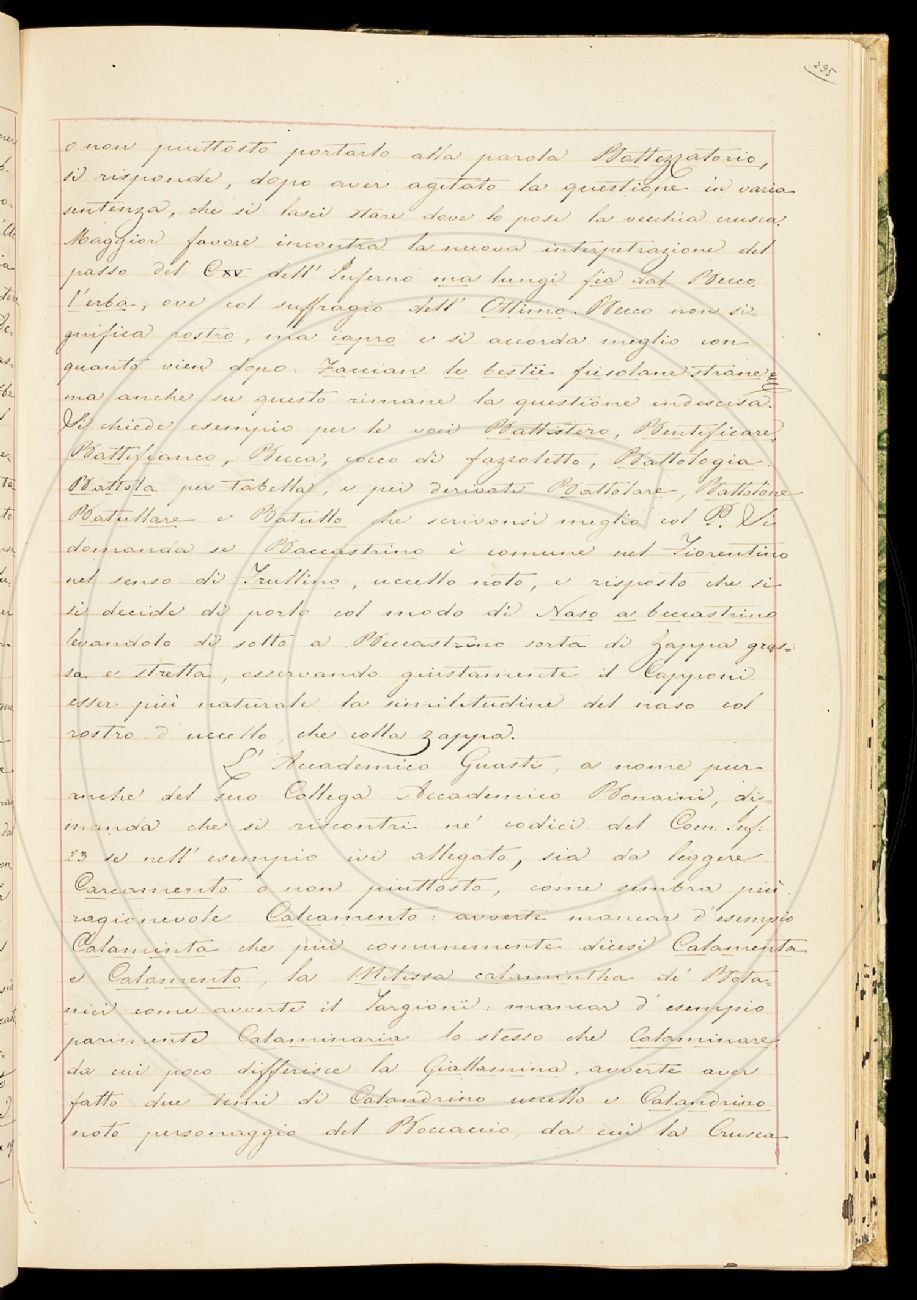 295
o non piuttosto portarlo alla parola Battezzatorio,
si risponde, dopo aver agitato la questione in varia
sentenza, che si lasci stare dove lo pose la vecchia crusca.
Maggior favore incontra la nuova interpetrazione del
passo del C XV dell' Inferno ma lungi fia dal Becco
l'erba, ove col suffragio dell' Ottimo. Becco non si-
gnifica rostro, ma capro e si accorda meglio con
quanto vien dopo. Faccian le bestie fiesolane strane
ma anche su questo rimane la questione indecisa.
Si chiede esempio per le voci Battistero, Bentificare,
Battifianco, Becca, cocco di fazzoletto, Battologia
Battola per tabella, e pei derivati Battolare, Battolone
Batullare e Batullo che scrivonsi meglio col P. Si
domanda se Baccastrino è comune nel Fiorentino
nel senso di Trullino, uccello noto, e risposto che si
si decide di porlo col modo di Naso a beccastrino
levandolo di sotto a Beccastrino sorta di zappa gros-
sa e stretta, osservando giustamente il Capponi
esser più naturale la similitudine del naso col
rostro d'uccello, che colla zappa.
L' Accademico Guasti, a nome pur
anche del suo Collega Accademico Bonaini, di-
manda che si riscontri ne' codici del Com. Inf:
23 se nell' esempio ivi allegato, sia da leggere
Carcamento o non piuttosto, come sembra più
ragionevole Calcamento: avverte mancar d'esempio
Calaminta che più comunemente dicesi Calamenta
e Calamento, la Melissa calamintha de' Bota-
nici come avverte il Targioni: mancar d'esempio
parimente Calaminaria lo stesso che Calaminare
da cui poco differisce la Giallamina, avverte aver
fatto due temi di Calandrino uccello e Calandrino
noto personaggio del Boccaccio, da cui la Crusca